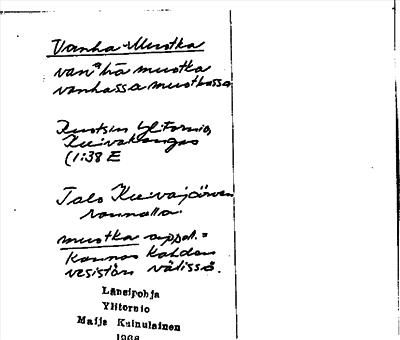 Vanha-Muotka
vanˣha muotka
vanhassa muotkassa
Ruotsin Ylitornio,
Kuivakangas
(1:38 E
Talo Kuivajärven
rannalla.
muotka appell. =
kannas kahden
vesistön välissä.
Länsipohja
Ylitornio
Maija Kainulainen